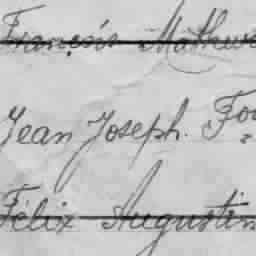 François Mathew
Jean Joseph. Fou
Félix Augustin